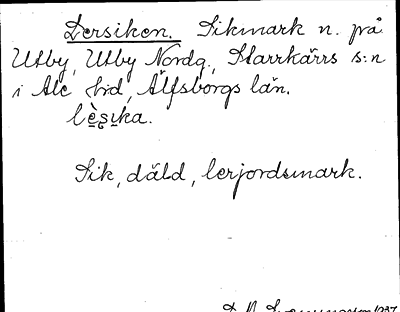 Lersiken. Sikmark n. på
Utby, Utby Nordg., Starrkärrs s:n
i Ale hd, Älfsborgs län.
lèsika.
Sik, däld, lerjordsmark.
1937